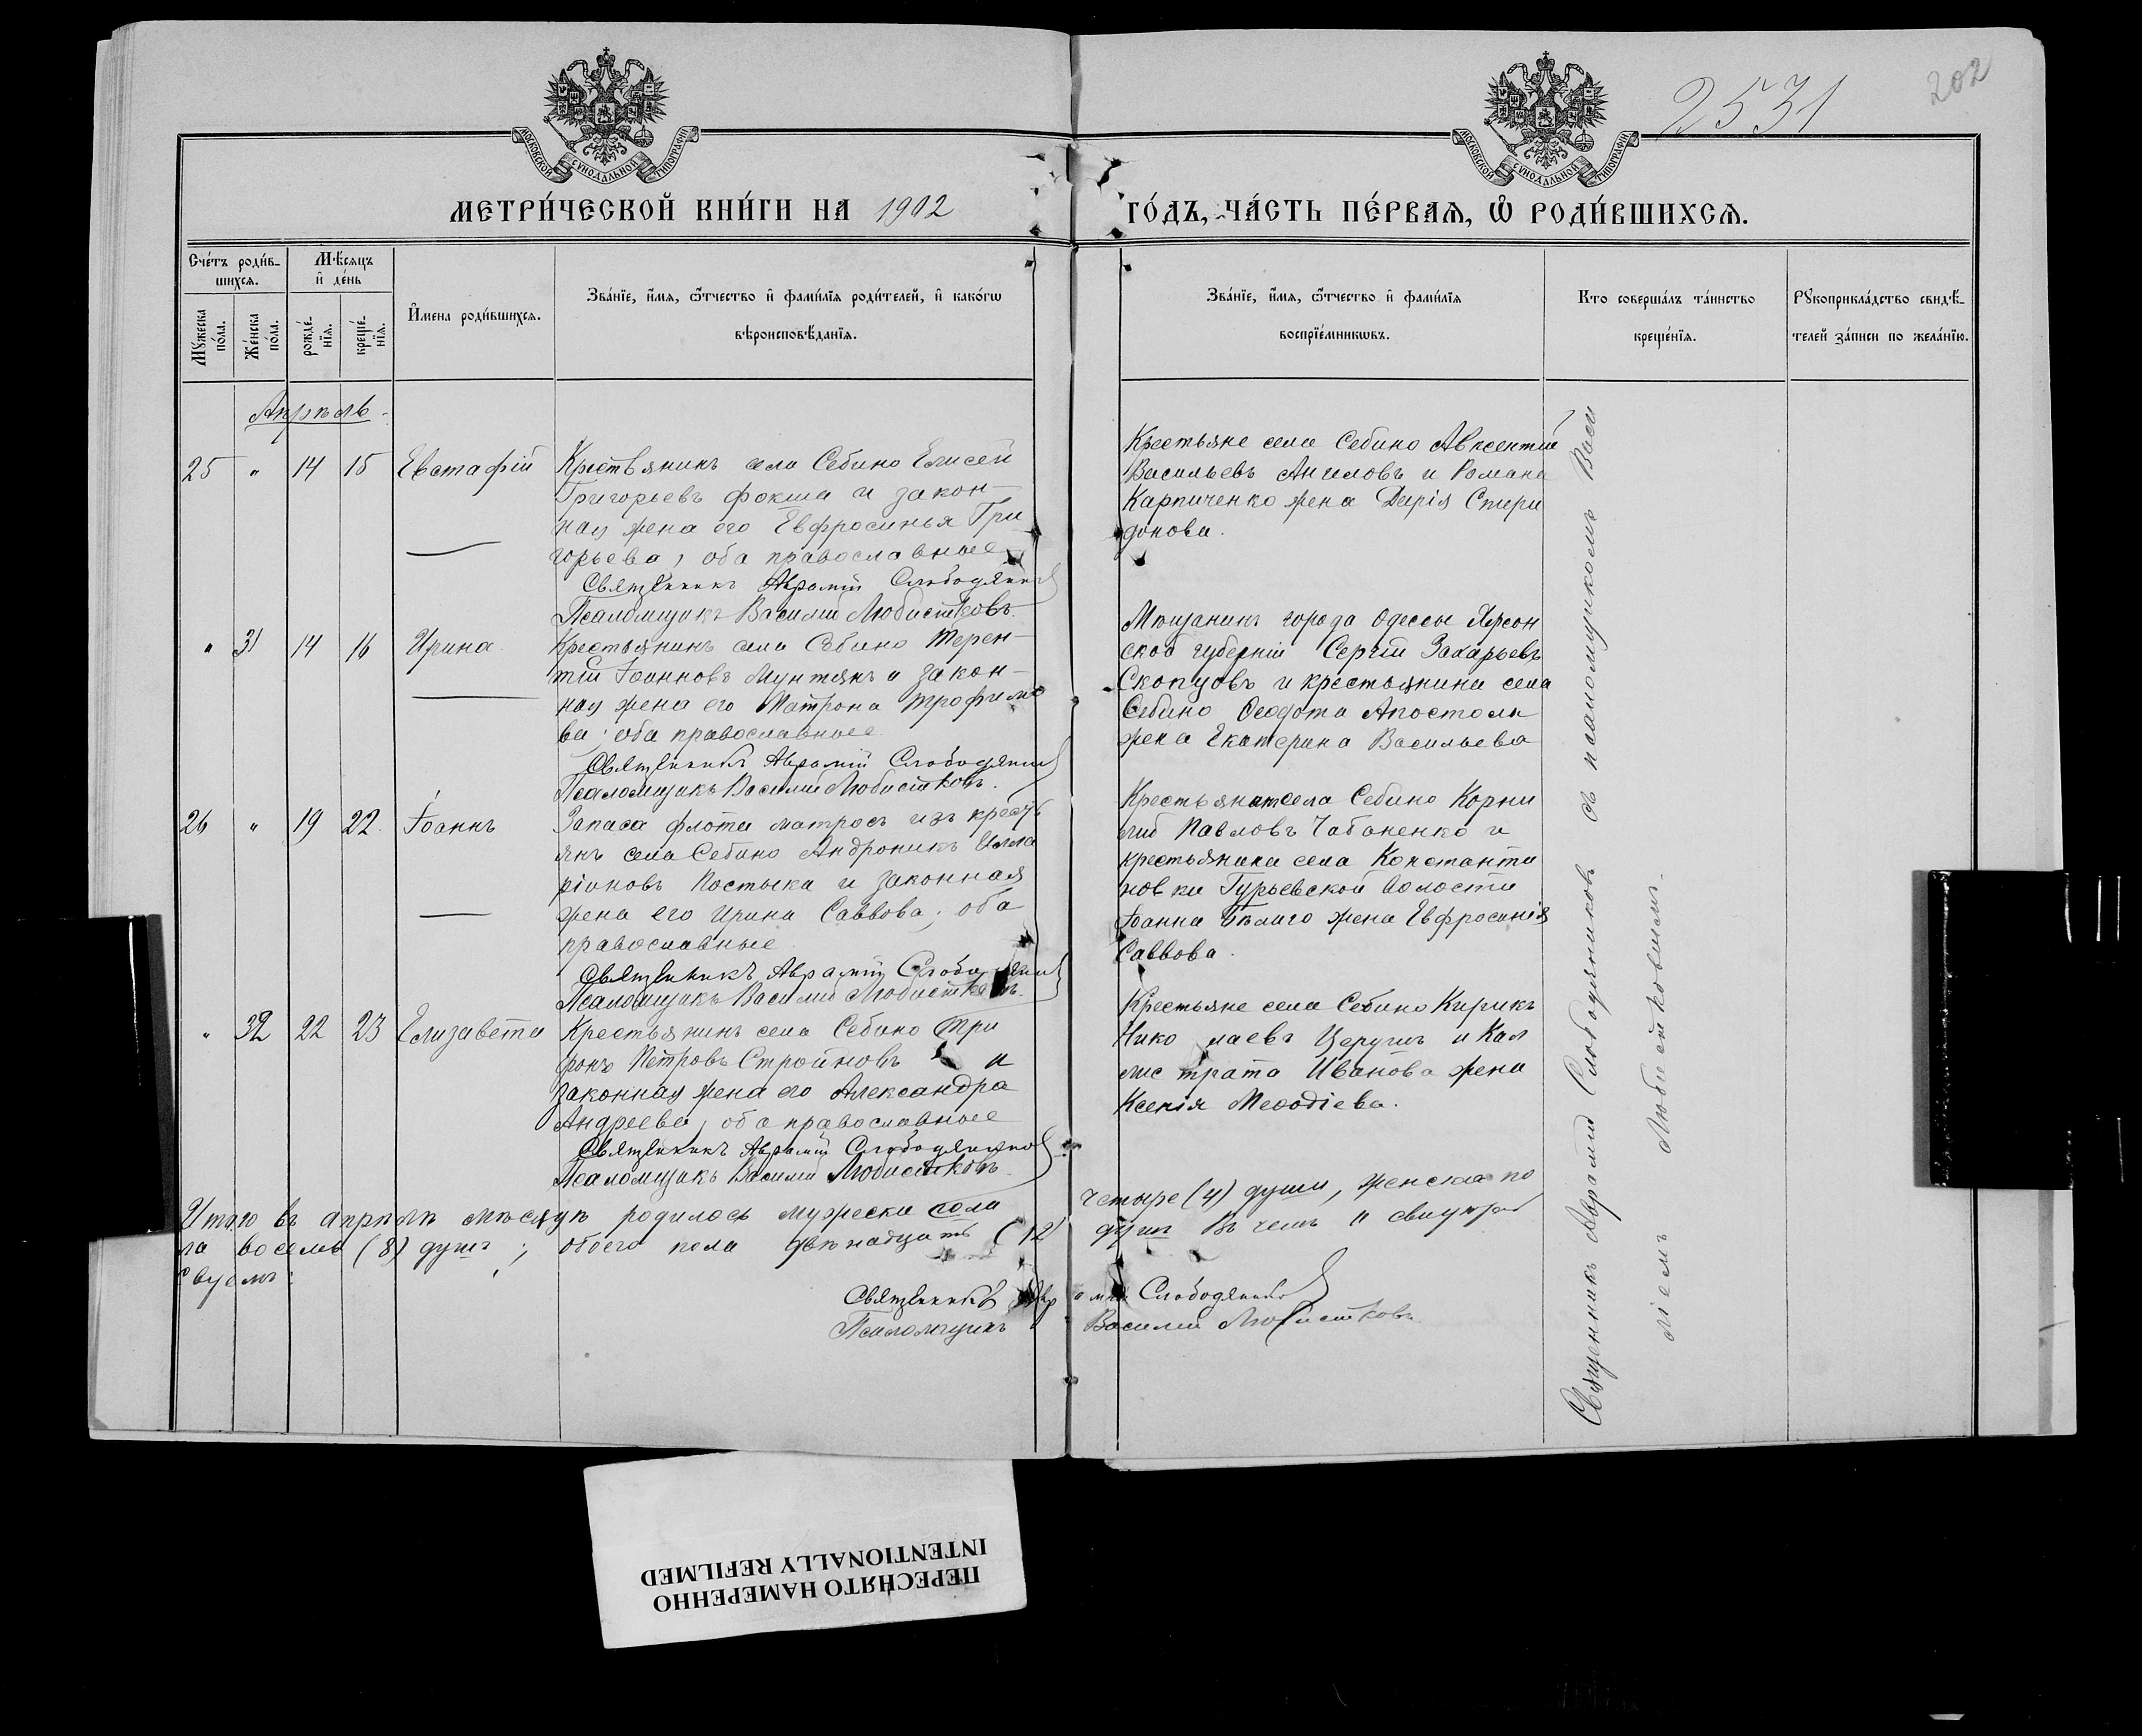 2531
202
МОСКОВСКОЙ СѴНОДАЛЬНОЙ ТИПОГРАФІИ
МОСКОВСКОЙ СѴНОДАЛЬНОЙ ТИПОГРАФІИ
МЕТРИ́ЧЕСКОЙ КНИ́ГИ НА 1902
ГО́ДЪ, ЧА́СТЬ ПЕ́РВАѦ, Ѽ РОДИ́ВШИХСѦ.
Сче́тъ роди́в-
шихсѧ.
Мꙋ́жеска
по́ла.
Же́нска
по́ла.
Мѣ́сѧцъ
и҆ де́нь
рожде́-
нїѧ.
креще́-
нїѧ.
И҆мена роди́вшихсѧ.
Зва́нїе, и҆́мѧ, ѻ҆́тчество и҆ фами́лїѧ роди́телей, и҆ како́гѡ
вѣроисповѣ́данїѧ.
Зва́нїе, и҆́мѧ, ѻ҆́тчество и҆ фами́лїѧ
воспрїе́мникѡвъ.
Кто соверша́лъ та́инство
креще́нїѧ.
Рꙋкоприкла́дство свидѣ́-
телей за́писи по жела́нїю.
Апрѣль
25 " 14 15 Евстафій
Крестьянинъ села Себино Елисей
Григорьевъ Фокша и закон-
ная жена его Евфросинья Гри
горьева, оба православные
Священникъ Аврамій Слободяник
Псаломщикъ Василий Любистковъ.
Крестьяне села Себино Авксентий
Васильевъ Ангеловъ и Романа
Карпиченко жена Дарія Спири
донова.
" 31 14 16 Ирина
Крестьянинъ села Себино Терен-
тій Іоанновъ Мунтянъ и закон-
ная жена его Матрона Трофимо
ва; оба православные
Священникъ Аврамій Слободяник
Псаломщикъ Василий Любистковъ.
Мѣщанинъ города Одессы Херсон
ской губерніи Сергій Захарьевъ
Скопцовъ и крестьянина села
Себино Ѳеодота Апостола
жена Екатерина Васильева
26 " 19 22. Іоаннъ
Запаса флота матросъ изъ кресть
янъ села Себино Андроникъ Илла
ріоновъ Постыка и законная
жена его Ирина Саввова; оба
православные
Священникъ Аврамій
Псаломщикъ Василий
села Себино Корни
лий Павловъ Чабаненко и
крестьянина села Константи
новки Гурьевской волости
Іоанна жена Евфросинія
Саввова.
" 32 22 23 Елизавета
Крестьянинъ села Себино Три
фонъ Петровъ Стройновъ и
законная жена его Александра
Андреева, оба православные
Священникъ Аврамій Слободяник
Псаломщикъ Василий Любистковъ
Крестьяне села Себино Кирикъ
Николаевъ и Кал
листрата Иванова жена
Ксенія Меѳодіева.
Священникъ Аврамій Слободяниковъ съ псаломщикомъ Васи
ліемъ Любистковымъ.
Итого въ апрѣлѣ мѣсяцѣ родилось мужеска пола четыре (4) души, женска по
ла восемь (8) душъ; обоего пола двѣнадцать (12) душъ Въ чемъ и свидѣтель
ствуемъ:
Священникъ Аврамій Слободяник
Псаломщикъ Василий Любистковъ
ПЕРЕСНЯТО НАМЕРЕННО
INTENTIONALLY REFILMED